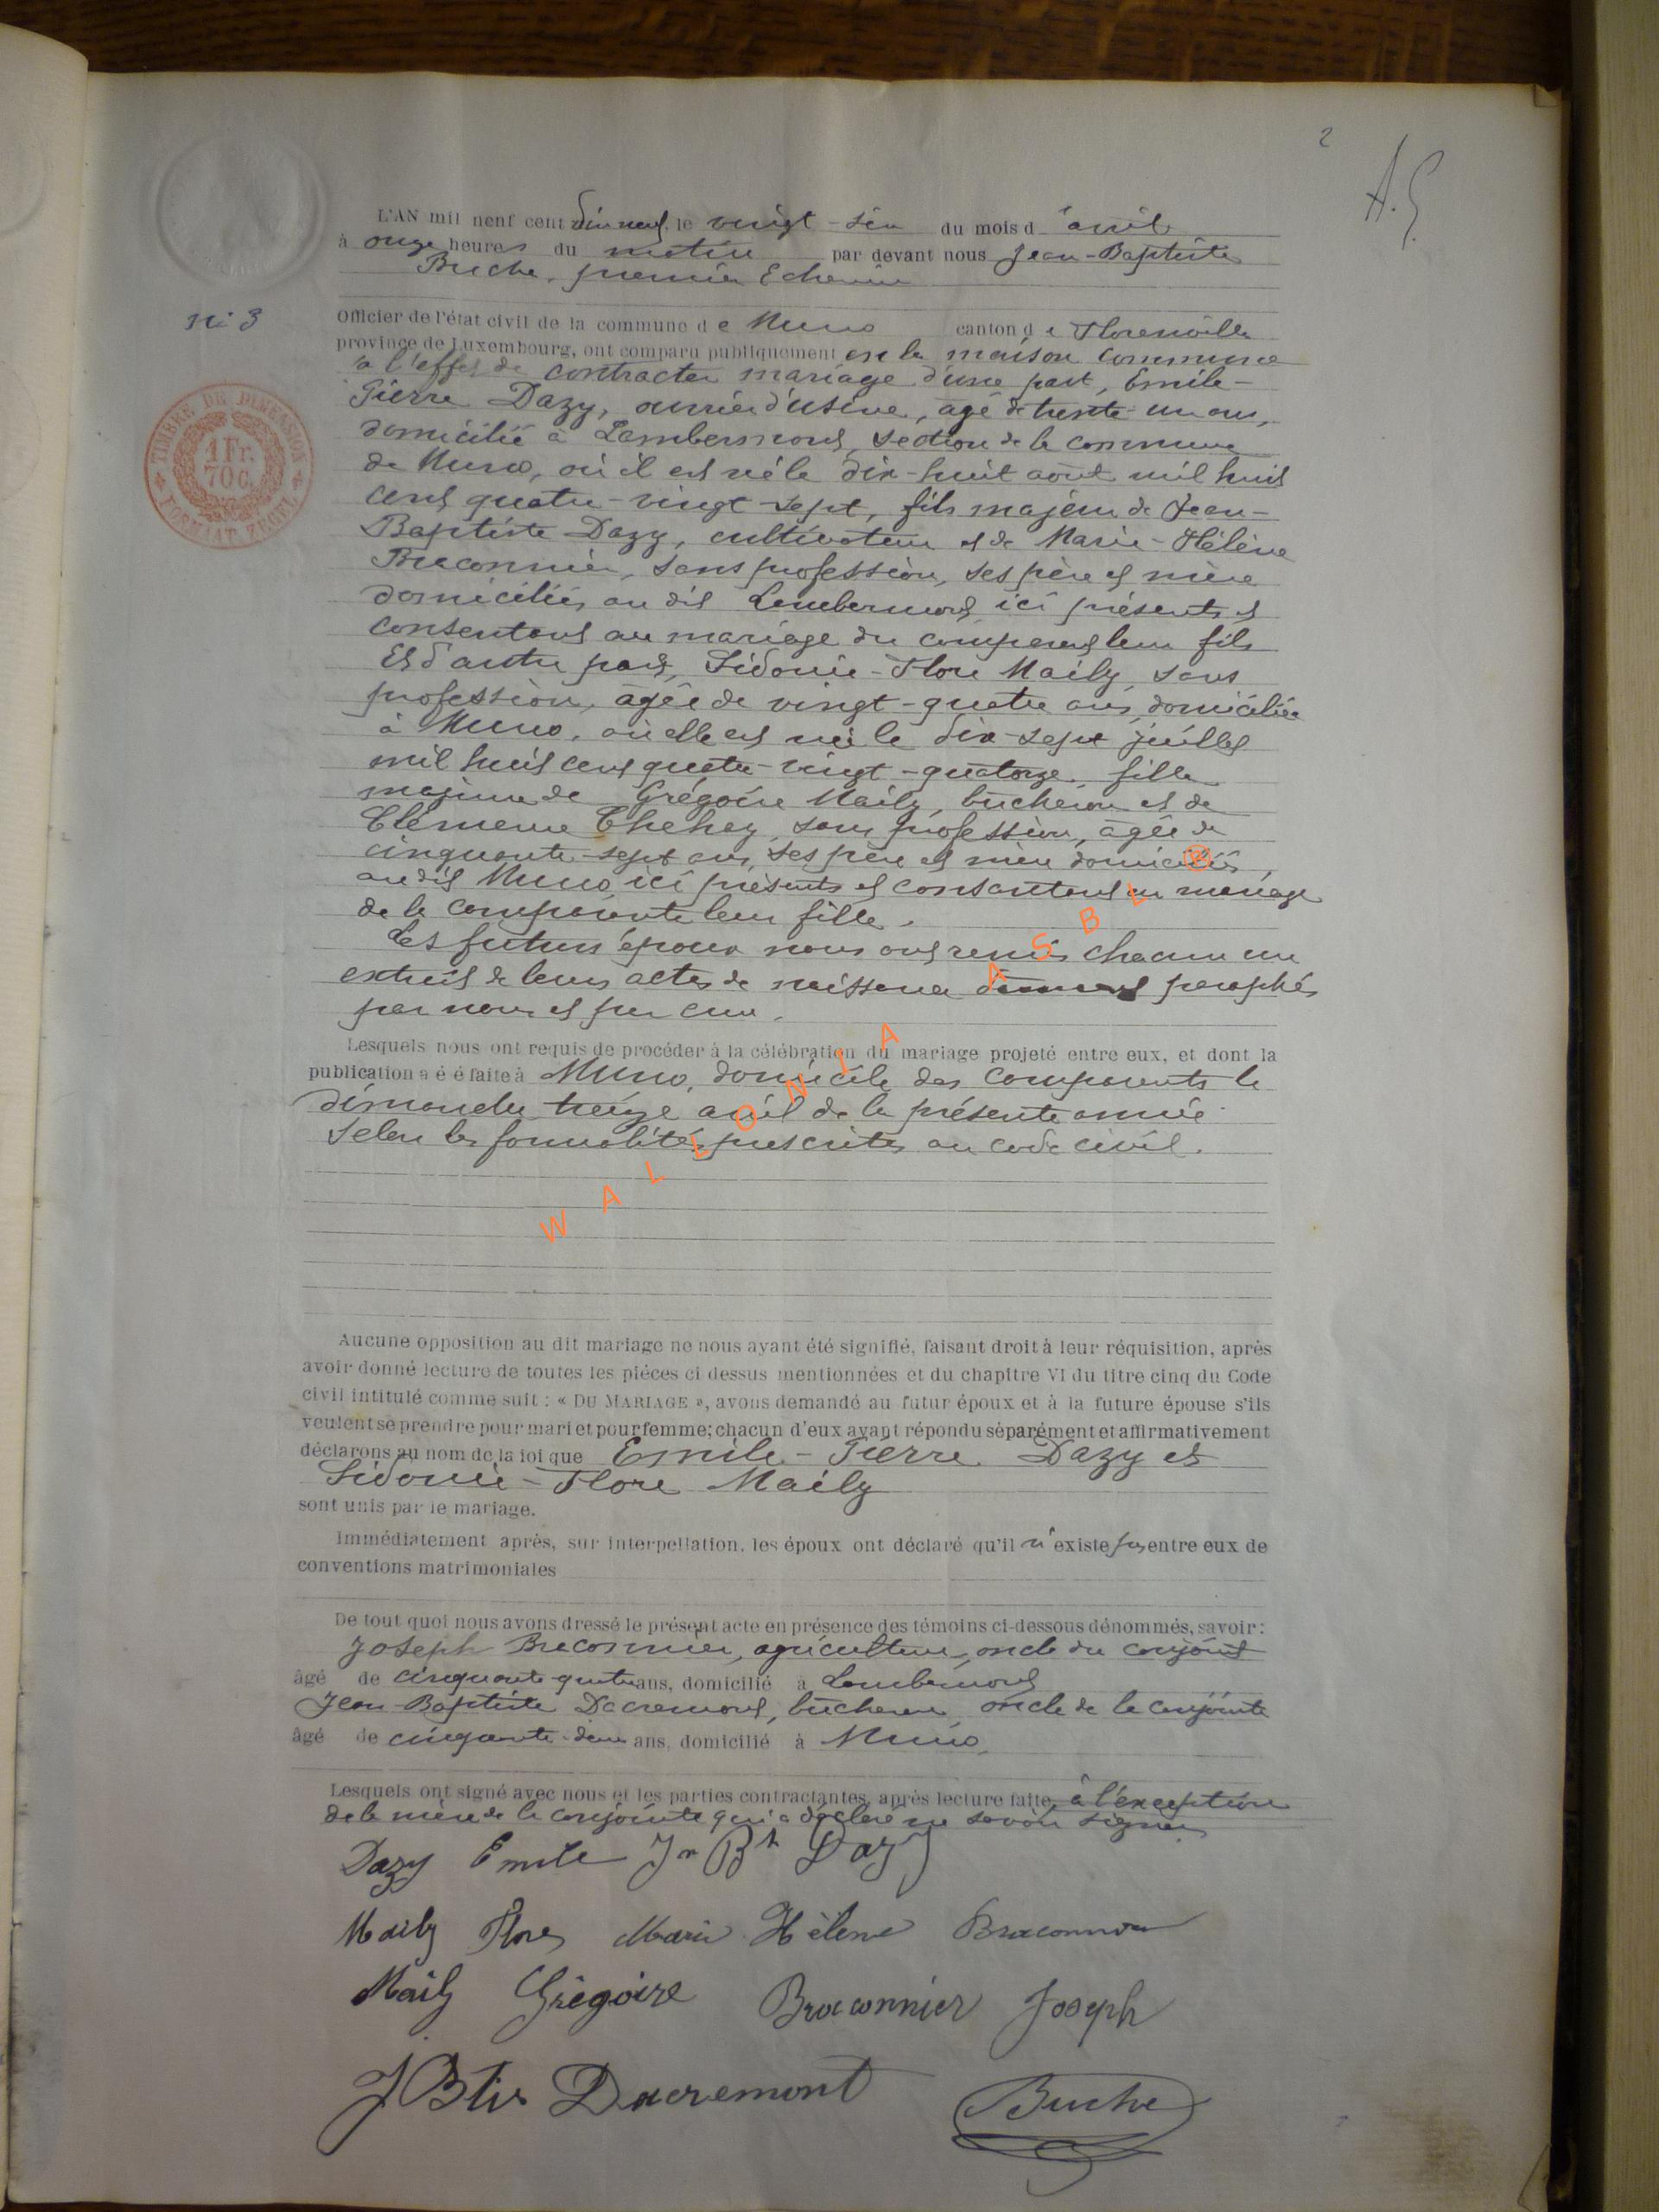 2
A.G
L'AN mil neuf cent dix neuf, le vingt-six du mois d'avril
à onze heures du matin par devant nous Jean-Baptiste
Buche, premier Echevin
N° 3
Officier de l'état civil de la commune de Muno canton de Florenville
province de Luxembourg, ont comparu publiquement en la maison commune
à l'effet de contracter mariage d'une part, Emile-
Pierre Dazy, ouvrier d'usine, âgé de trente-un ans,
domicilié à Lambermont, section de la commune
de Muno, où il est né le dix-huit août mil huit
cent quatre-vingt-sept, fils majeur de Jean-
Baptiste Dazy, cultivateur et de Marie-Hélène
Braconnier, sans profession, ses père et mère
domiciliés au dit Lambermont, ici présents et
consentant au mariage du comparant leur fils
Et d'autre part, Sidonie-Flore Maily, sans
profession, âgée de vingt-quatre ans, domiciliée
à Muno, où elle est née le dix-sept juillet
mil huit cent quatre-vingt-quatorze, fille
majeure de Grégoire Maily, bûcheron et de
Clémence Thehey, sans profession, âgée de
cinquante-sept ans, ses père et mère domiciliés
au dit Muno ici présents et consentant au mariage
de la comparante leur fille.
Les futurs époux nous ont remis chacun un
extrait de leurs actes de naissance paraphés
par nous et par eux.
Lesquels nous ont requis de procéder à la célébration du mariage projeté entre eux, et dont la
publication a é é faite à Muno, domicile des comparants le
dimanche treize avril de la présente année
selon les formalités prescrites au code civil.
Aucune opposition au dit mariage ne nous ayant été signifié, faisant droit à leur réquisition, après
avoir donné lecture de toutes les pièces ci dessus mentionnées et du chapitre VI du titre cinq du Code
civil intitulé comme suit : « DU MARIAGE », avons demandé au futur époux et à la future épouse s'ils
veulent se prendre pour mari et pour femme; chacun d'eux ayant répondu séparément et affirmativement
déclarons au nom de la loi que Emile-Pierre Dazy et
Sidonie-Flore Maily
sont unis par le mariage.
Immédiatement après, sur interpellation, les époux ont déclaré qu'il n'existe pas entre eux de
conventions matrimoniales
De tout quoi nous avons dressé le présent acte en présence des témoins ci-dessous dénommés, savoir :
Joseph Braconnier, agriculteur, oncle du conjoint
âgé de cinquante-quatre ans, domicilié à Lambermont
Jean-Baptiste Dacremont, bûcheron, oncle de la conjointe
âgé de cinquante-deux ans, domicilié à Muno,
Lesquels ont signé avec nous et les parties contractantes, après lecture faite, à l'exception
de la mère de la conjointe qui a déclaré ne savoir signer
Dazy Emile Jn Bte Dazy
Maily Flore Marie Hélène Braconnier
Maily Grégoire Braconnier Joseph
JBte Dacremont Buche
TIMBRE DE DIMENSION
1 Fr.
70 c.
FORMAT ZEGEL
WALLONIA ASBL ®